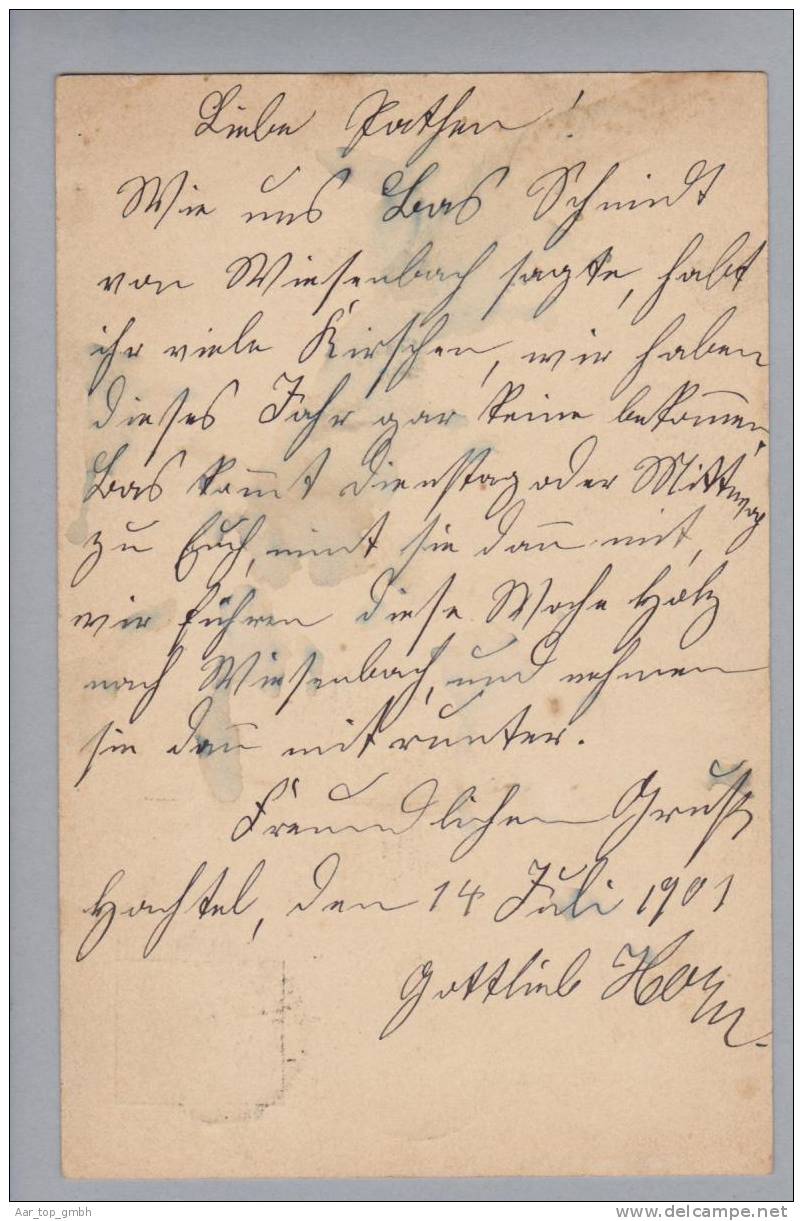 Liebe Pathen!
Wie uns Bas Schmidt
von Wiesenbach sagte, habt
ihr viele Kirschen, wir haben
dieses Jahr gar keine bekommen.
Bas kommt Dienstag oder Mittwoch
zu Euch, nimt sie dann mit,
wir führen diese Woche Holz
nach Wiesenbach, und nehmen
sie dann mit runter.
Freundlichen Gruß
Hachtel, den 14 Juli 1901
Gottlieb
Aar_top_gmbh
www.delcampe.net